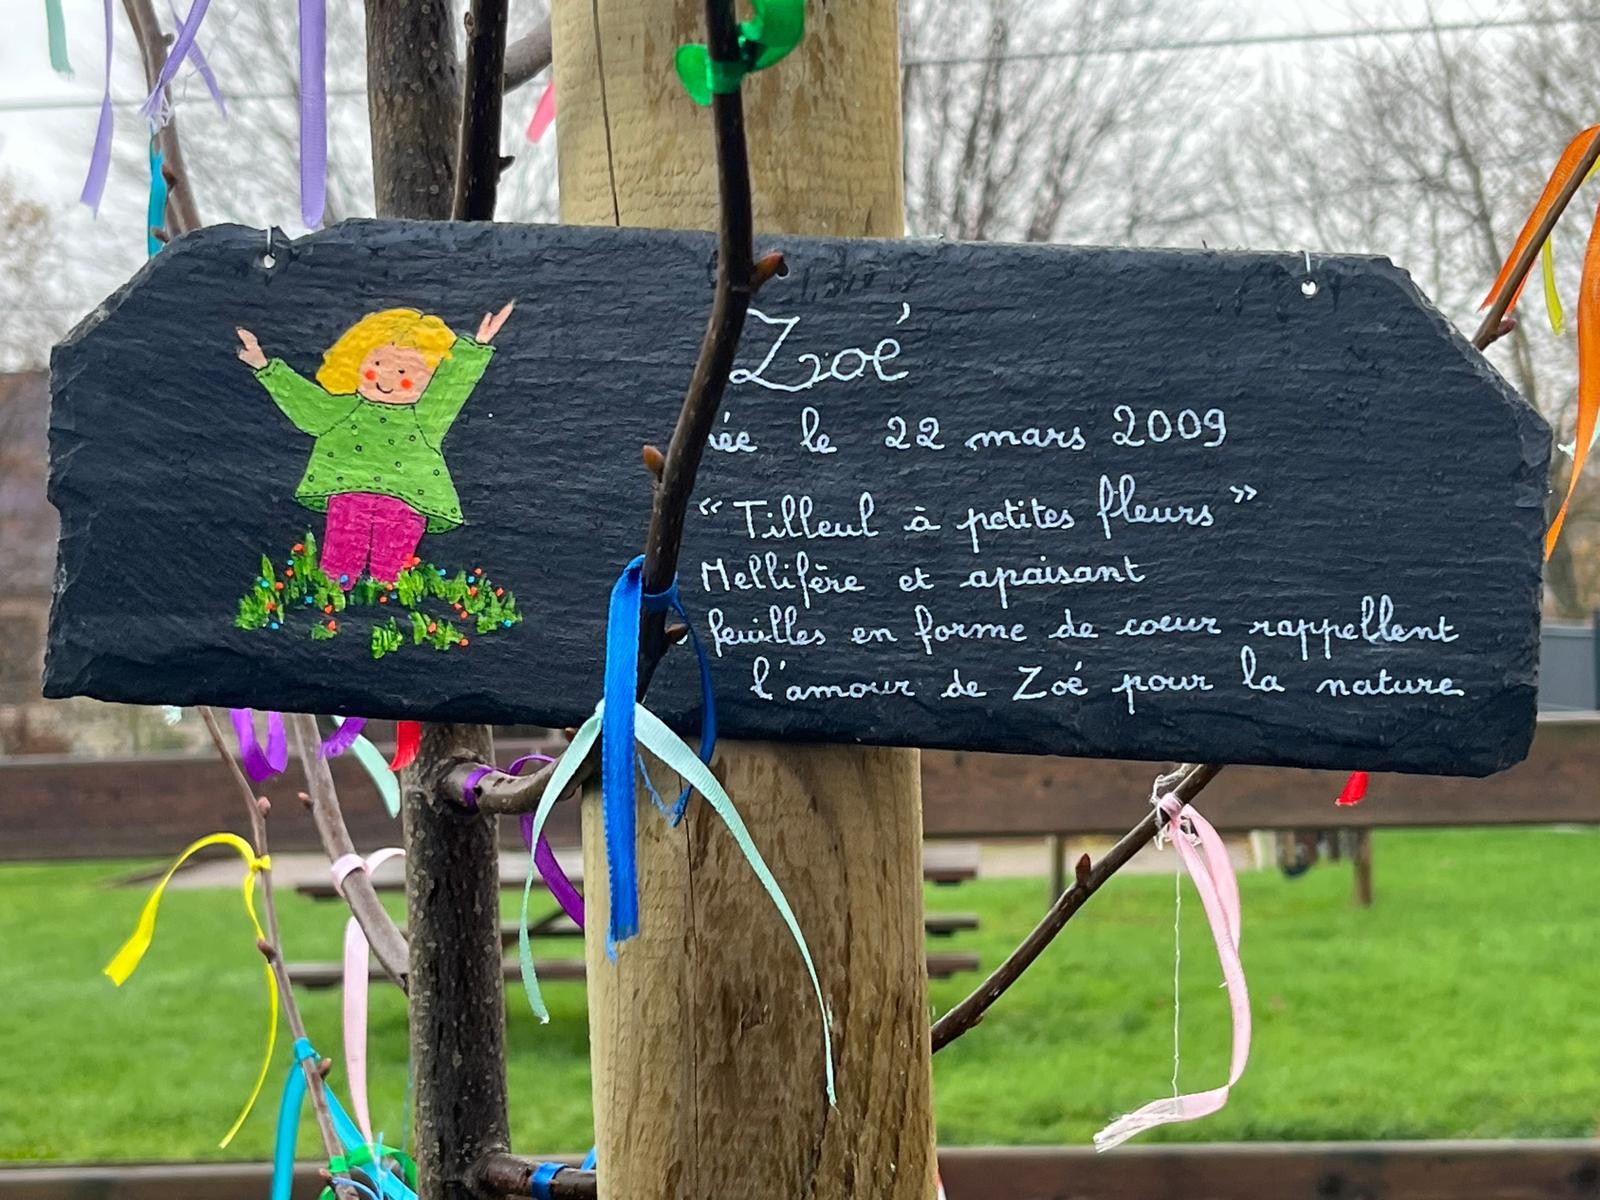 Zoé
ée le 22 mars 2009
“Tilleul à petites fleurs”
Mellifère et apaisant
feuilles en forme de coeur rappellent
l'amour de Zoé pour la nature